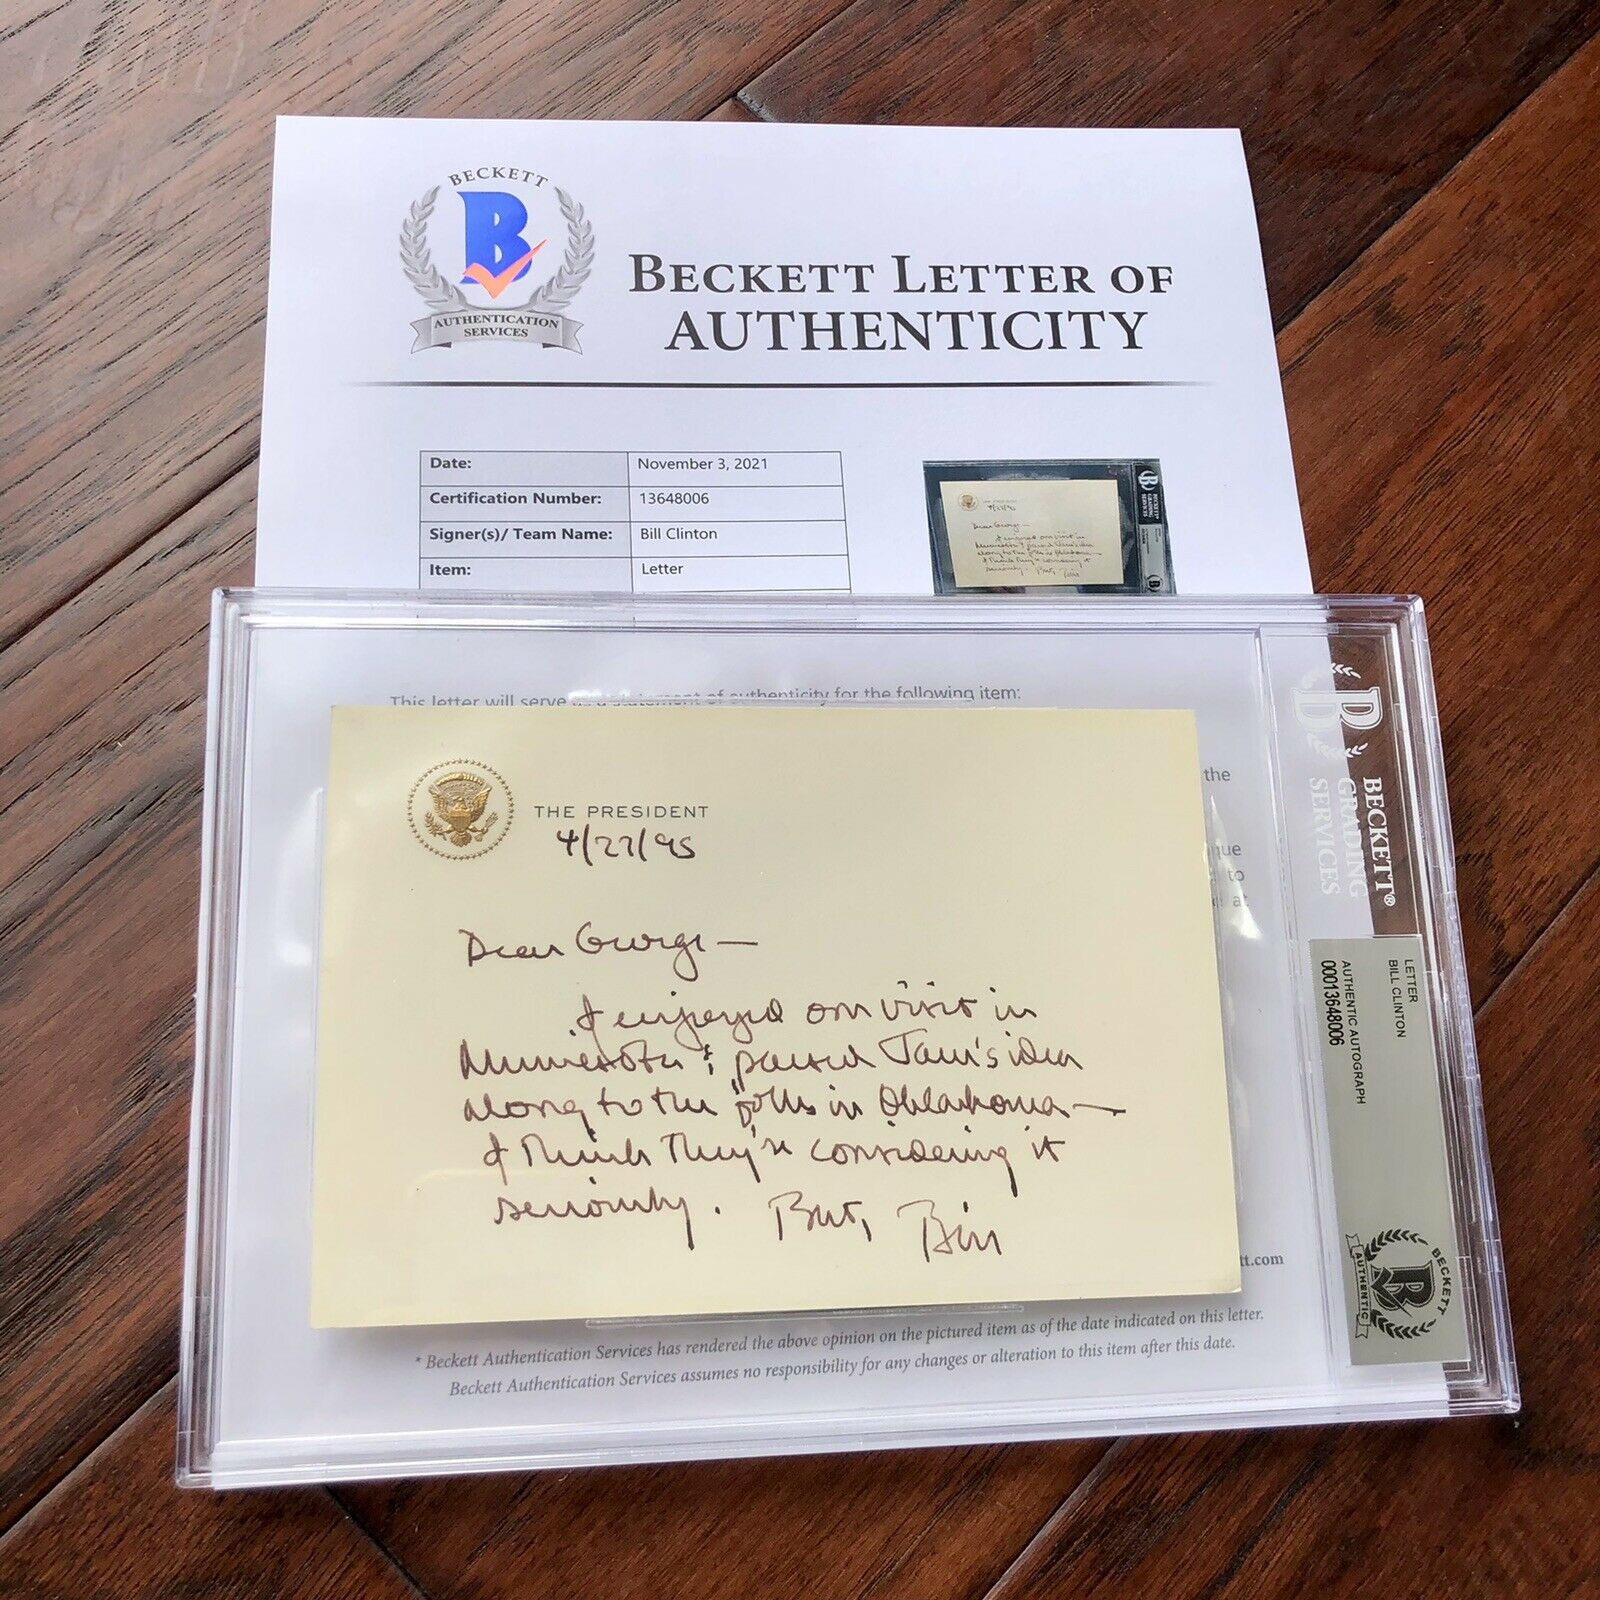 BECKETT
B
AUTHENTICATION
SERVICES
BECKETT LETTER OF
AUTHENTICITY
Date: November 3, 2021
Certification Number: 13648006
Signer(s)/ Team Name: Bill Clinton
Item: Letter
This letter will serve as a statement of authenticity for the following item:
the
to
at
THE PRESIDENT
4/27/95
Dear George—
I enjoyed our visit in
Minnesota & passed Jam's idea
along to the folks in Oklahoma—
I think they're considering it
seriously. Best, Bill
tt.com
* Beckett Authentication Services has rendered the above opinion on the pictured item as of the date indicated on this letter.
Beckett Authentication Services assumes no responsibility for any changes or alteration to this item after this date.
BECKETT®
GRADING
SERVICES
LETTER
BILL CLINTON
AUTHENTIC AUTOGRAPH
00013648006
BECKETT
B
AUTHENTIC